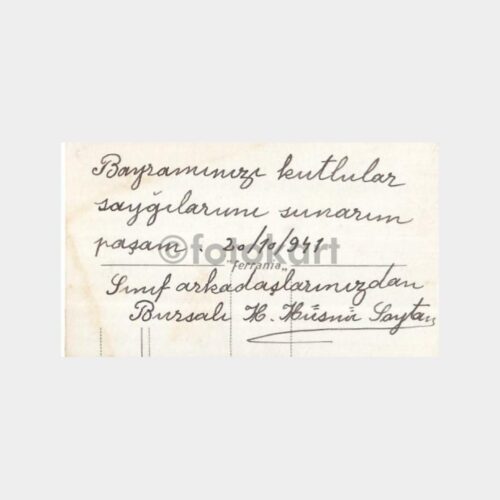 Bayramınızı kutlular
saygılarımı sunarım
paşam . 20/10/941
©fotokart
"ferrania"
Sınıf arkadaşlarınızdan
Bursalı H. Hüsnü Saytan